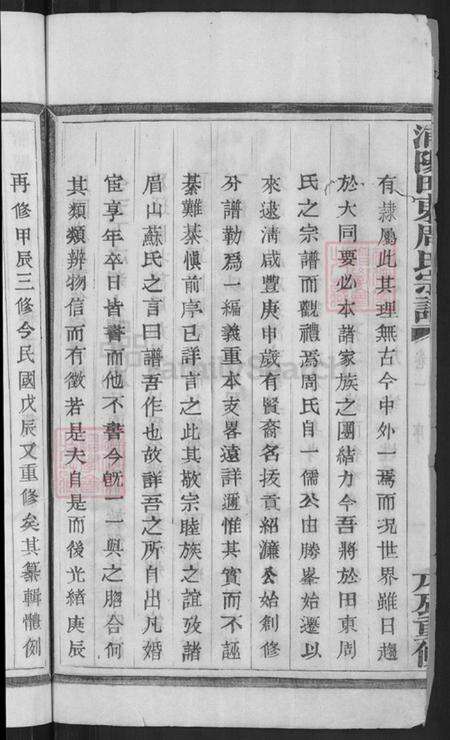 有隸屬此其理無古今中外一焉而況世界雖日趨
於大同要必本諸家族之團結力今吾將於田東周
氏之宗譜而觀禮焉周氏自一儒公由勝峯始遷以
來逮淸咸豐庚申歲有賢裔名拔貢紹濂公始創修
分譜勒爲一編義重本支畧遠詳邇惟其實而不誣
綦難綦愼前序已詳言之此其敬宗睦族之誼攷諸
眉山蘇氏之言曰譜吾作也故詳吾之所自出凡婚
宦享年卒日皆書而他不書今旣一一與之脗合何
其類類辨物信而有徵若是夫自是而後光緒庚辰
再修甲辰三修今民國戊辰又重修矣其纂輯體例
浦陽田東周氏宗譜
戊辰重修
FamilySearch